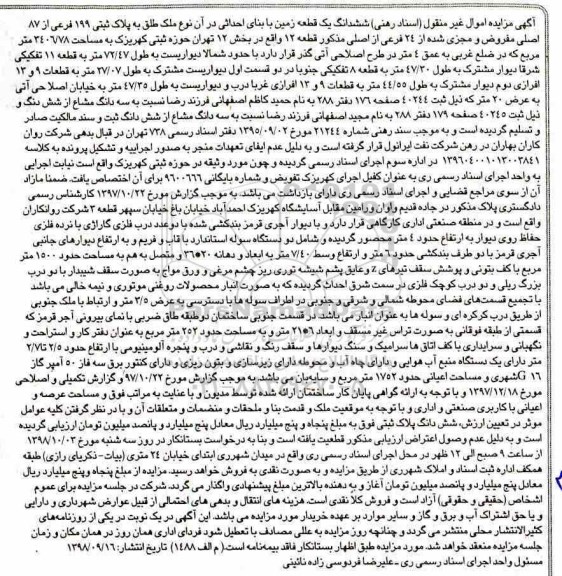 آگهی مزایده اموال غیر منقول (اسناد رهنی) ششدانگ یک قطعه زمین با بنای احداثی در آن نوع ملک طلق به پلاک ثبتی ۱۹۹ فرعی از ۸۷
اصلی مفروض و مجزی شده از ۲۴ فرعی از اصلی مذکور قطعه ۱۲ واقع در بخش ۱۲ تهران حوزه ثبتی کهریزک به مساحت ۳۴۰۶/۷۸ متر
مربع که در ضلع غربی به عمق ۴ متر در طرح اصلاحی آتی گذر قرار دارد با حدود شمالا دیواریست به طول ۷۲/۴۷ متر به قطعه ۱۱ تفکیکی
شرقا دیوار مشترک به طول ۴۷/۳۰ متر به قطعه ۸ تفکیکی جنوبا در دو قسمت اول دیواریست مشترک به طول ۳۷/۰۷ متر به قطعات ۹ و ۱۳
افرازی دوم دیوار مشترک به طول ۴۴/۵۵ متر به قطعات ۹ و ۱۳ افرازی غربا درب و دیواریست به طول ۴۷/۳۵ متر به خیابان اصلاحی آتی
به عرض ۲۰ متر که ذیل ثبت ۴۰۲۴۴ صفحه ۱۷۶ دفتر ۲۸۸ به نام حمید کاظم اصفهانی فرزند رضا نسبت به سه دانگ مشاع از شش دنگ و
ذیل ثبت ۴۰۲۴۵ صفحه ۱۷۹ دفتر ۲۸۸ به نام مجید اصفهانی فرزند رضا نسبت به سه دانگ مشاع از شش دانگ ثبت و سند مالکیت صادر
و تسلیم گردیده است و به موجب سند رهنی شماره ۲۱۲۴۴ مورخ ۱۳۹۵/۰۹/۰۲ دفتر اسناد رسمی ۷۳۸ تهران در قبال بدهی شرکت روان
کاران بهاران در رهن شرکت نفت ایرانول قرار گرفته است و به دلیل عدم ایفای تعهدات منجر به صدور اجراییه و تشکیل پرونده به کلاسه
۱۳۹۶۰۴۰۰۱۰۱۳۰۰۳۸۴۱ در اداره سوم اجرای اسناد رسمی گردیده و چون مورد وثیقه در حوزه ثبتی کهریزک واقع است نیابت اجرایی
به واحد اجرای اسناد رسمی ری به عنوان کفیل اجرای کهریزک تفویض و شماره بایگانی ۹۶۰۰۶۶۶ برای آن اختصاص یافت. ضمنا مازاد
آن از سوی مراجع قضایی و اجرای اسناد رسمی دارای بازداشتی می باشد. به موجب گزارش مورخ ۱۳۹۷/۱۰/۲۲ کارشناس رسمی
دادگستری پلاک مذکور در جاده قدیم واوان ورامین مقابل آسایشگاه کهریزک احمدآباد خیابان باغ خیابان سپهر قطعه ۳ شرکت روانکاران
واقع است و در منطقه صنعتی اداری کارگاهی قرار دارد و با دیوار آجری قرمز بندکشی شده با دو عدد درب فلزی گاراژی با نرده فلزی
حفاظ روی دیوار به ارتفاع حدود ۴ متر محصور گردیده و شامل دو دستگاه سوله استاندارد با قاب و فریم و به ارتفاع دیوارهای جانبی
آجری قرمز با دو طرف بندکشی حدود ۶ متر و ارتفاع وسط ۷/۴۰ متر به ابعاد و دهانه ۲۰*۳۶ و متصل به هم به مساحت حدود ۱۵۰۰ متر
مربع با کف بتونی و پوشش سقف تیرهای z و عایق پشم شیشه توری ریز چشم مرغی و ورق مواج به صورت سقف شیبدار با دو درب
بزرگ ریلی و دو درب کوچک فلزی در سمت شرق احداث گردیده که به صورت انبار محصولات روغنی موتوری و نیمه خالی می باشد
با تجمیع قسمت‌های فضای محوطه شمالی و شرقی و جنوبی در اطراف سوله ها با دسترسی به عرض ۳/۵ متر و ارتباط با ملک جنوبی
از طریق درب کرکره ای و سوله ها به عنوان انبار می باشد. در قسمت جنوب غربی ساختمان دوطبقه طاق ضربی با نمای بیرونی آجر قرمز که
قسمتی از طبقه فوقانی به صورت تراس غیر مسقف و ابعاد ۶*۲۱ متر و به مساحت حدود ۲۵۲ متر مربع به عنوان دفتر کار و استراحت و
نگهبانی و سرایداری با کف اتاق ها سرامیک و سنگ دیوارها و سقف رنگ و نقاشی و درب و پنجره آلومینیومی با ارتفاع حدود ۲/۵ تا ۲/۷
متر دارای یک دستگاه منبع آب هوایی و دارای چاه آب، محوطه دارای زیرسازی و بتون ریزی و دارای کنتور برق سه فاز ۵۰ آمپر گاز
G ۱۶ شهری و مساحت اعیانی حدود ۱۷۵۲ متر مربع و سایبان می باشد. به موجب گزارش مورخ ۹۷/۱۰/۲۲ و گزارش تکمیلی و اصلاحی
مورخ ۱۳۹۷/۱۲/۱۸ و با توجه به ارائه گواهی پایان کار ساختمان ارائه شده توسط مدیون و با عنایت به مراتب فوق و مساحت عرصه و
اعیانی با کاربری صنعتی و اداری و با توجه به موقعیت ملک و قدمت بنا و ملحقات و منضمات و متعلقات آن و با در نظر گرفتن کلیه عوامل
موثر در تعیین ارزش، شش دانگ پلاک ثبتی فوق به مبلغ پنجاه و پنج میلیارد ریال معادل پنج میلیارد و پانصد میلیون تومان ارزیابی گردیده
است و به دلیل عدم وصول اعتراض ارزیابی مذکور قطعیت یافته است و بنا به درخواست بستانکار در روز سه شنبه مورخ ۱۳۹۸/۱۰/۰۳
از ساعت ۹ صبح الی ۱۲ ظهر در محل اجرای اسناد رسمی ری واقع در میدان شهرری ابتدای خیابان ۲۴ متری (بیات- ذکریای رازی) طبقه
همکف اداره ثبت اسناد و املاک شهرری از طریق مزایده و به صورت نقدی به فروش خواهد رسید. مزایده از مبلغ پنجاه وپنج میلیارد ریال
معادل پنج میلیارد و پانصد میلیون تومان آغاز و به دهنده بالاترین مبلغ پیشنهادی واگذار می گردد. شرکت در جلسه مزایده برای عموم
اشخاص (حقیقی و حقوقی) آزاد است و فروش کلا نقدی است. هزینه های انتقال و بدهی های احتمالی از قبیل عوارض شهرداری و دارایی
و یا حق اشتراک آب و برق و گاز و سایر موارد بر عهده خریدار مورد مزایده می باشد. این آگهی در یک نوبت در یکی از روزنامه‌های
کثیرالانتشار محلی منتشر می گردد و چنانچه روز مزایده به عللی مصادف با تعطیل شود فردای اداری همان روز در همان مکان و زمان
جلسه مزایده منعقد خواهد شد. مورد مزایده طبق اظهار بستانکار فاقد بیمه‌نامه است.(م الف ۱۴۸۸) تاریخ انتشار: ۱۳۹۸/۰۹/۱۶
مسئول واحد اجرای اسناد رسمی ری ـ علیرضا فردوسی زاده نائینی